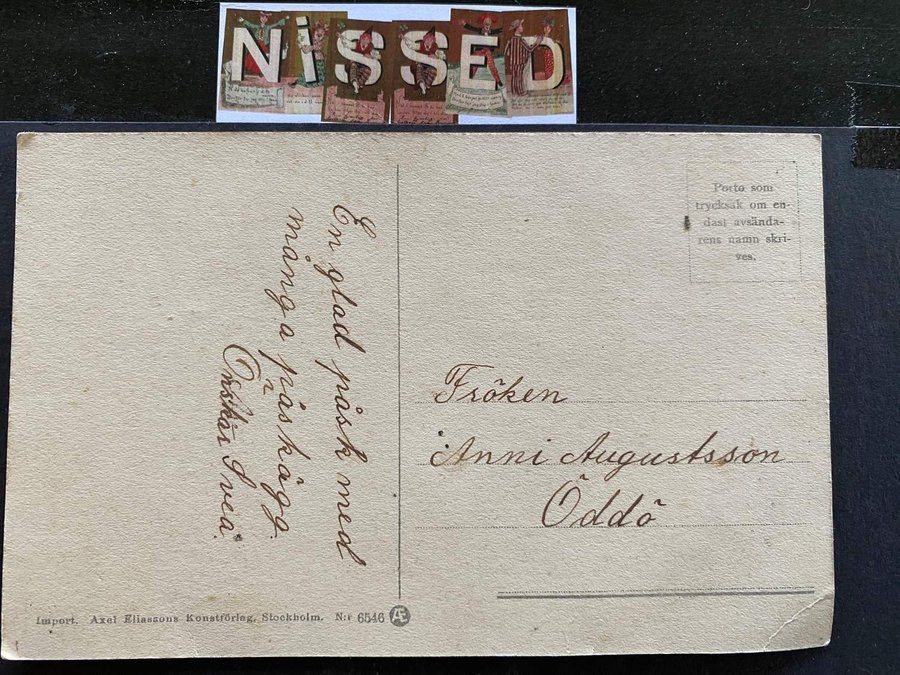 NISSED
En glad påsk med
många påskägg.
Önskar Svea.
Porto som
trycksak om en-
dast avsända-
rens namn skri-
ves.
Fröken
Anni Augustsson
Öddö
Import. Axel Eliassons Konstförlag, Stockholm. N:r 6546 Æ